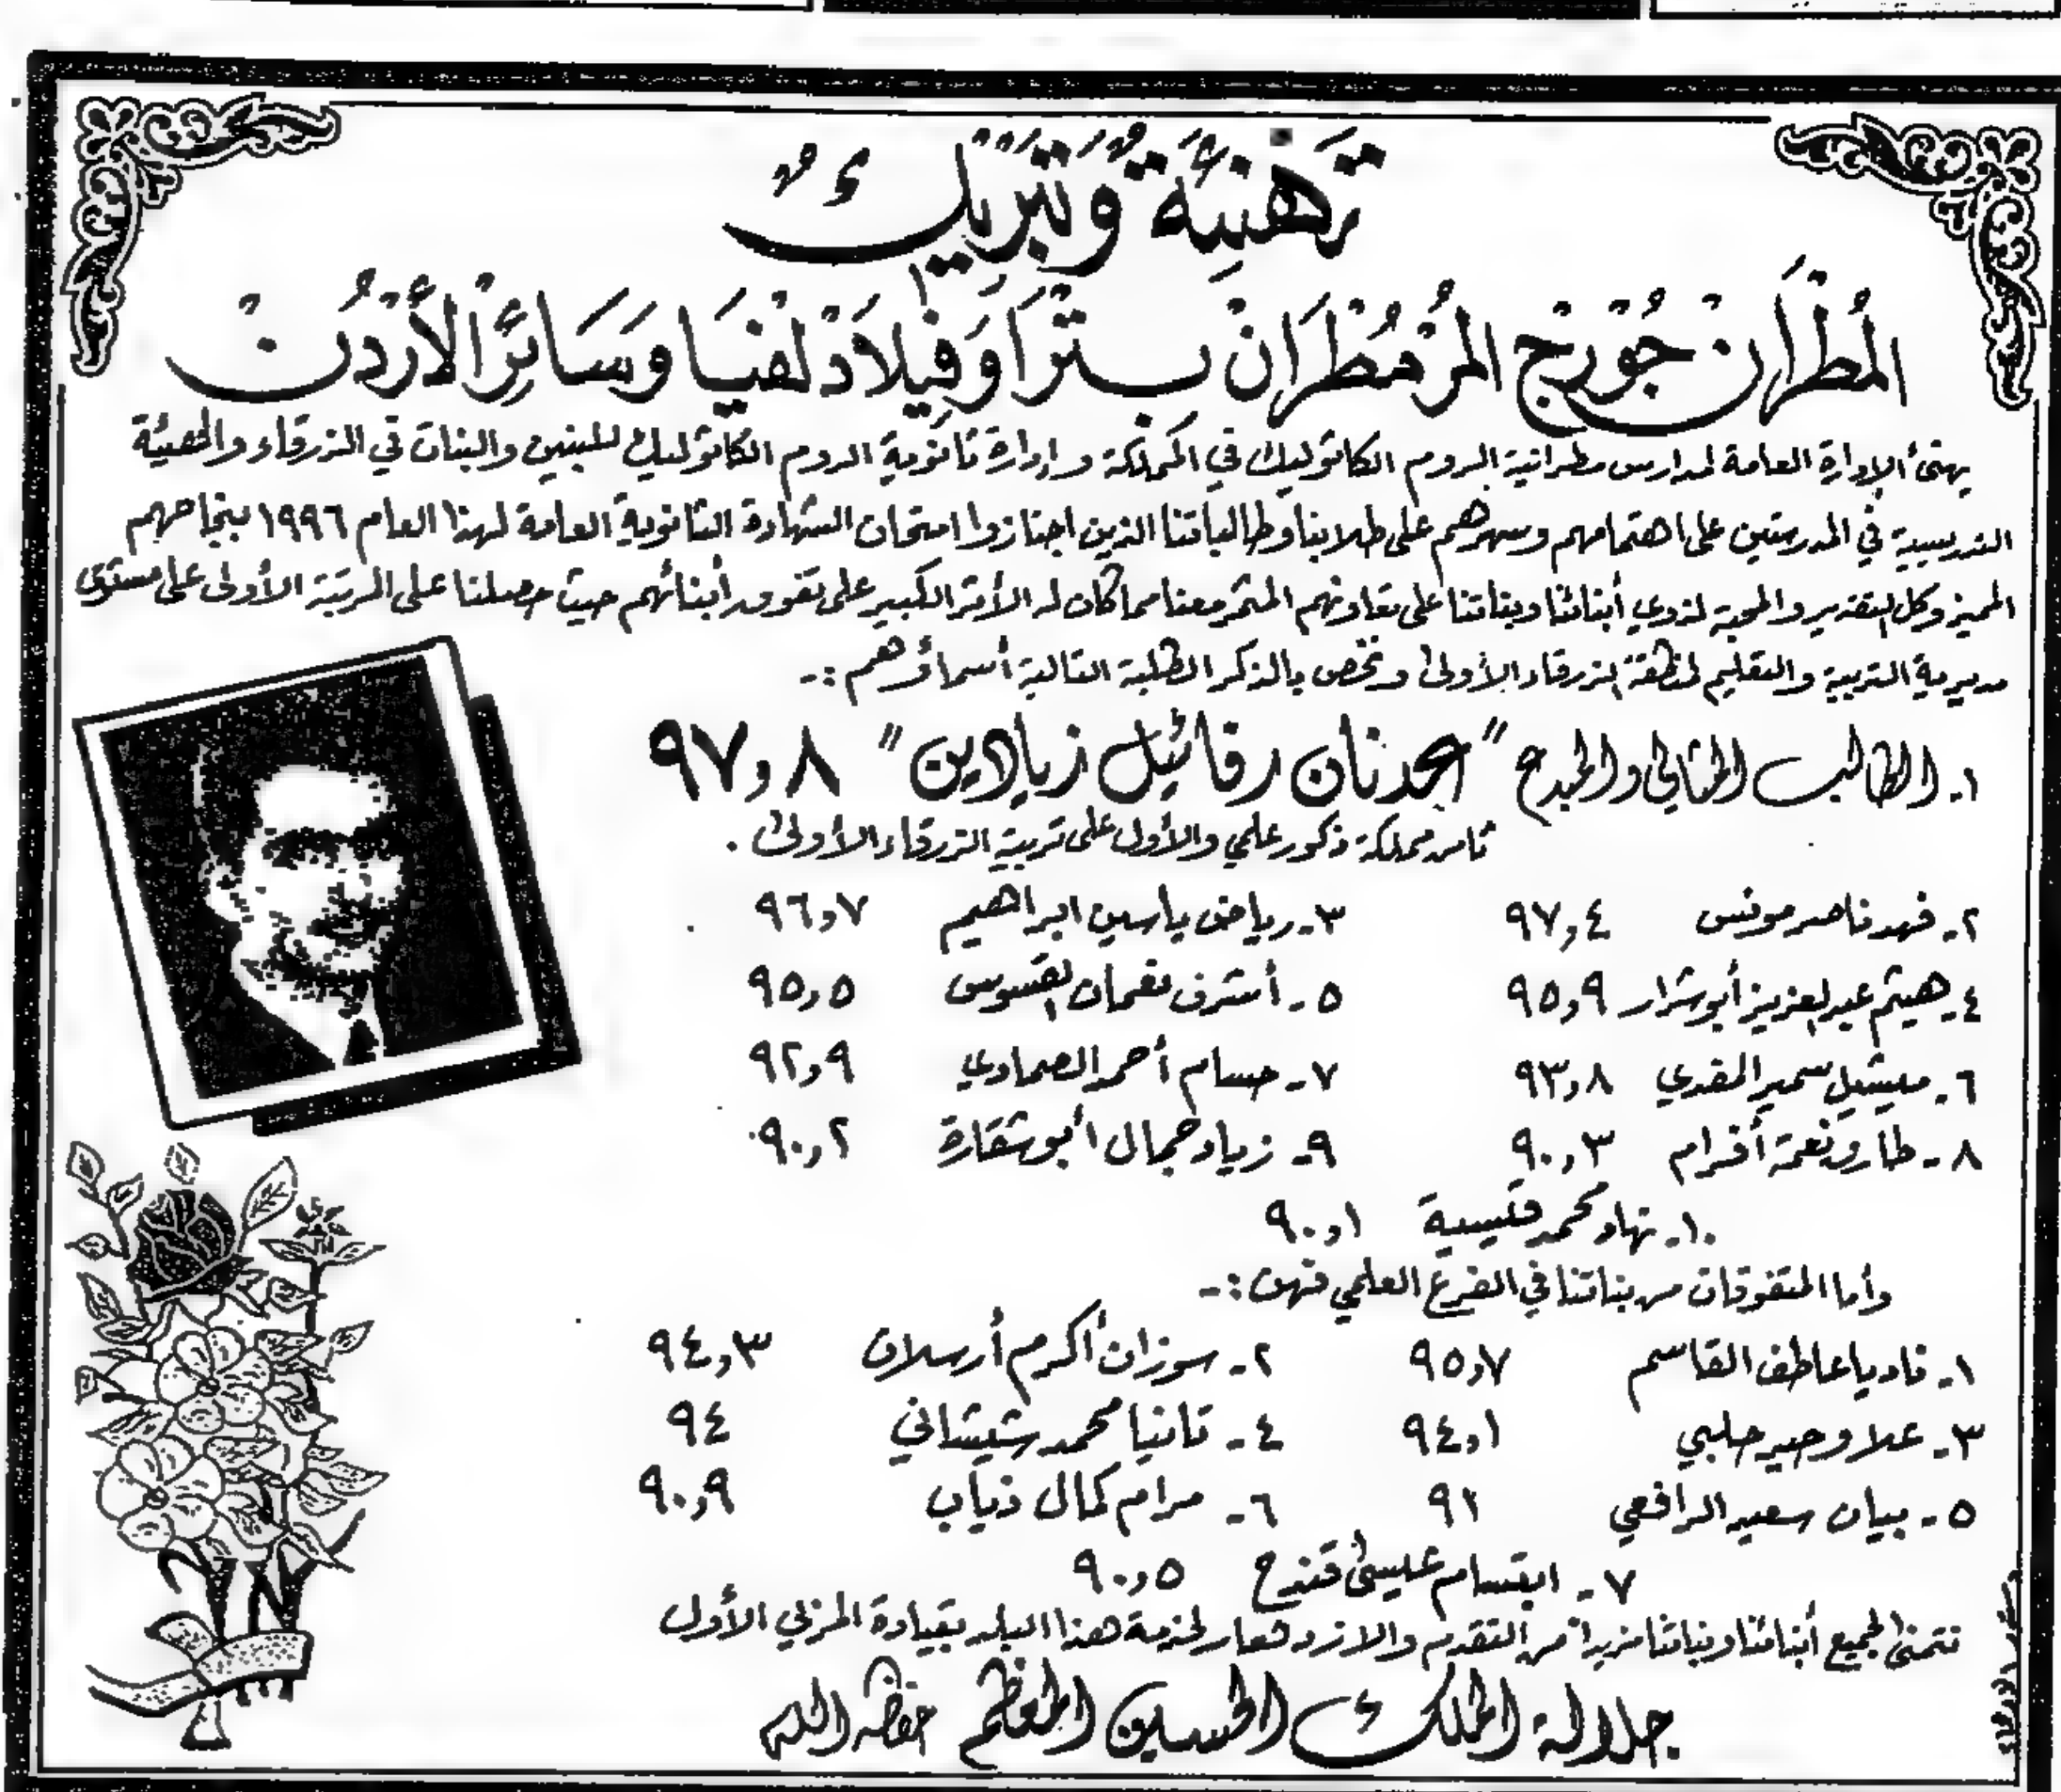 تهنئة وتبريك
المطران جورج المر مطران بترا وفيلادلفيا وسائر الأردن
يهنئ الإدارة العامة لمدارس مطرانية الروم الكاثوليك في المملكة وإدارة ثانوية الروم الكاثوليك للبنين والبنات في الزرقاء والهيئة
التدريسية في المدرستين على اهتمامهم وسهرهم على طلابنا وطالباتنا الذين اجتازوا امتحان الشهادة الثانوية العامة لهذا العام ١٩٩٦ بنجاحهم
المميز وكل التقدير والمحبة لذوي أبنائنا وبناتنا على تعاونهم المثمر معنا مما كان له الأثر الكبير على تفوق أبنائهم حيث حصلنا على المرتبة الأولى على مستوى
مديرية التربية والتعليم لمنطقة الزرقاء الأولى ونخص بالذكر الطلبة التالية أسماؤهم :-
١. الطالب المثالي والمبدع "عدنان رفائيل زيادين" ٩٧,٨
ثامن مملكة ذكور علمي والأول على تربية الزرقاء الأولى .
٢- فهد ناصر مونس ٩٧,٤ ٣- رياض ياسين ابراهيم ٩٦,٧
٤- هيثم عبد العزيز أبو شرار ٩٥,٩ ٥- أشرف نعمان القسوس ٩٥,٥
٦- ميشيل سمير المقدي ٩٣,٨ ٧- حسام أحمد الصمادي ٩٢,٩
٨- طارق نعمة أفرام ٩٠,٣ ٩- زياد جمال أبو شقارة ٩٠,٢
١٠- نهاد محمد قتيبية ٩٠,١
وأما المتفوقات من بناتنا في الفرع العلمي فهن :-
١- ناديا عاطف القاسم ٩٥,٧ ٢- سوزان أكرم أرسلان ٩٤,٣
٣- علا وحيد حلبي ٩٤,١ ٤- تانيا محمد شيشاني ٩٤
٥- بيان سعيد الرافعي ٩٢ ٦- مرام كمال ذياب ٩٠,٩
٧- ابتسام عيسى قندح ٩٠,٥
نتمنى لجميع أبنائنا وبناتنا مزيداً من التقدم والازدهار لخدمة هذا البلد بقيادة المربي الأول
جلالة الملك الحسين المعظم حفظه الله